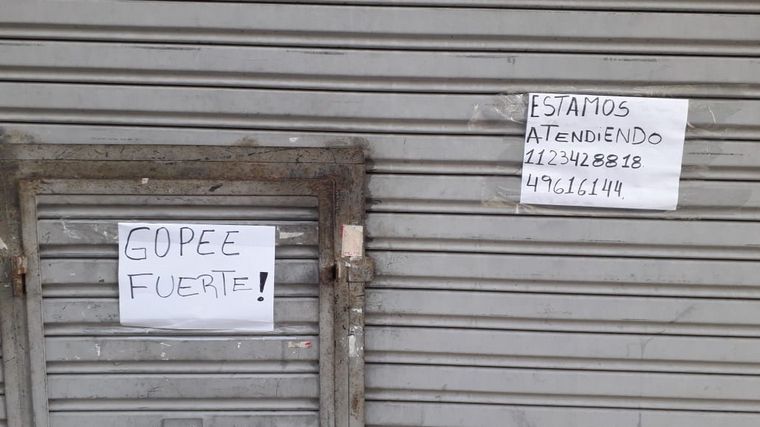 ESTAMOS
ATENDIENDO
1123428818
49616144
GOPEE
FUERTE!